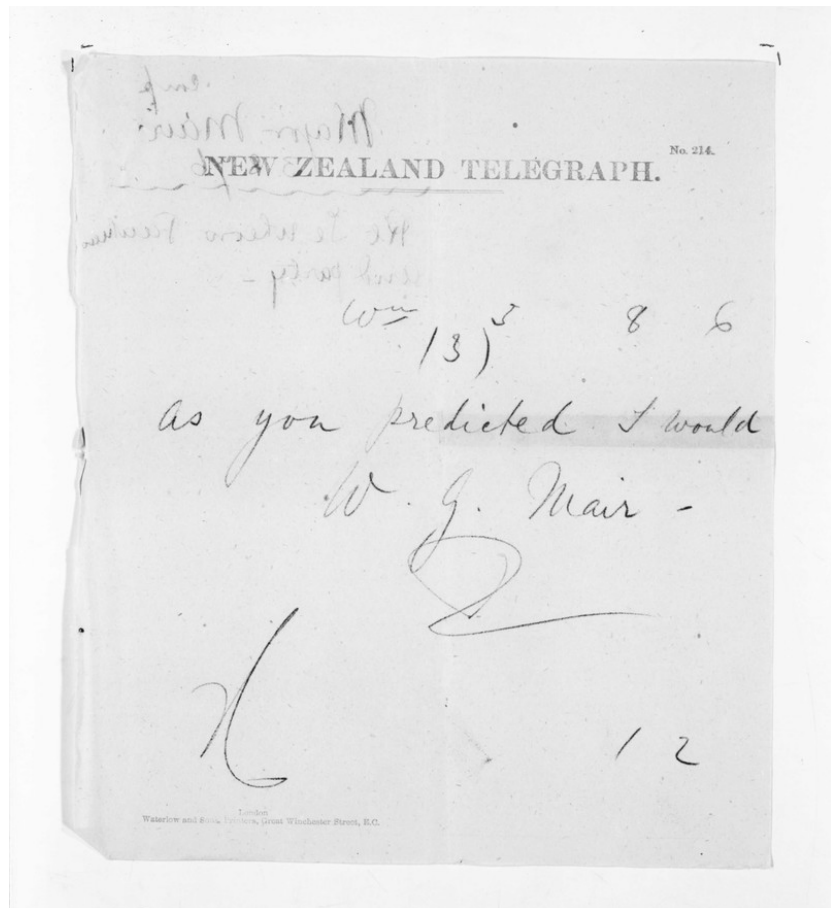 No. 214.
NEW ZEALAND TELEGRAPH.
Wm
(3)3 8 6
as you predicted I would
W. G. Mair -
12
London
Waterlow and Sons, Printers, Great Winchester Street, E.C.